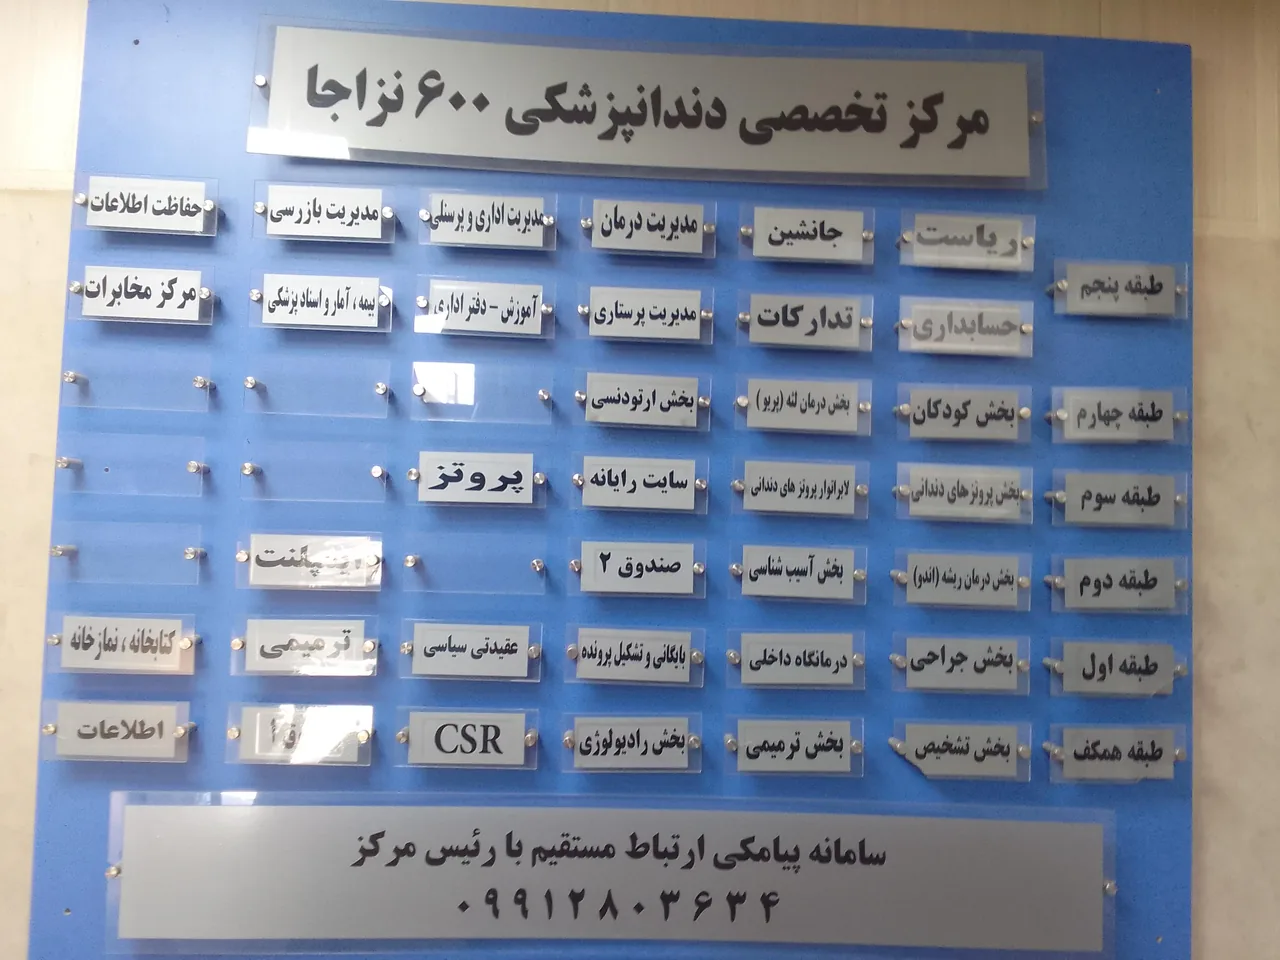 مرکز تخصصی دندانپزشکی ۶۰۰ نزاجا
ریاست
جانشین
مدیریت درمان
مدیریت اداری و پرسنلی
مدیریت بازرسی
حفاظت اطلاعات
طبقه پنجم
حسابداری
تدارکات
مدیریت پرستاری
آموزش - دفتر اداری
بیمه ، آمار و اسناد پزشکی
مرکز مخابرات
طبقه چهارم
بخش کودکان
بخش درمان لثه (پریو)
بخش ارتودنسی
طبقه سوم
بخش پروتزهای دندانی
لابراتوار پروتز های دندانی
سایت رایانه
پروتز
طبقه دوم
بخش درمان ریشه (اندو)
بخش آسیب شناسی
صندوق ۲
ایمپلنت
طبقه اول
بخش جراحی
درمانگاه داخلی
بایگانی و تشکیل پرونده
عقیدتی سیاسی
ترمیمی
کتابخانه ، نمازخانه
طبقه همکف
بخش تشخیص
بخش ترمیمی
بخش رادیولوژی
CSR
اطلاعات
سامانه پیامکی ارتباط مستقیم با رئیس مرکز
۰۹۹۱۲۸۰۳۶۳۴